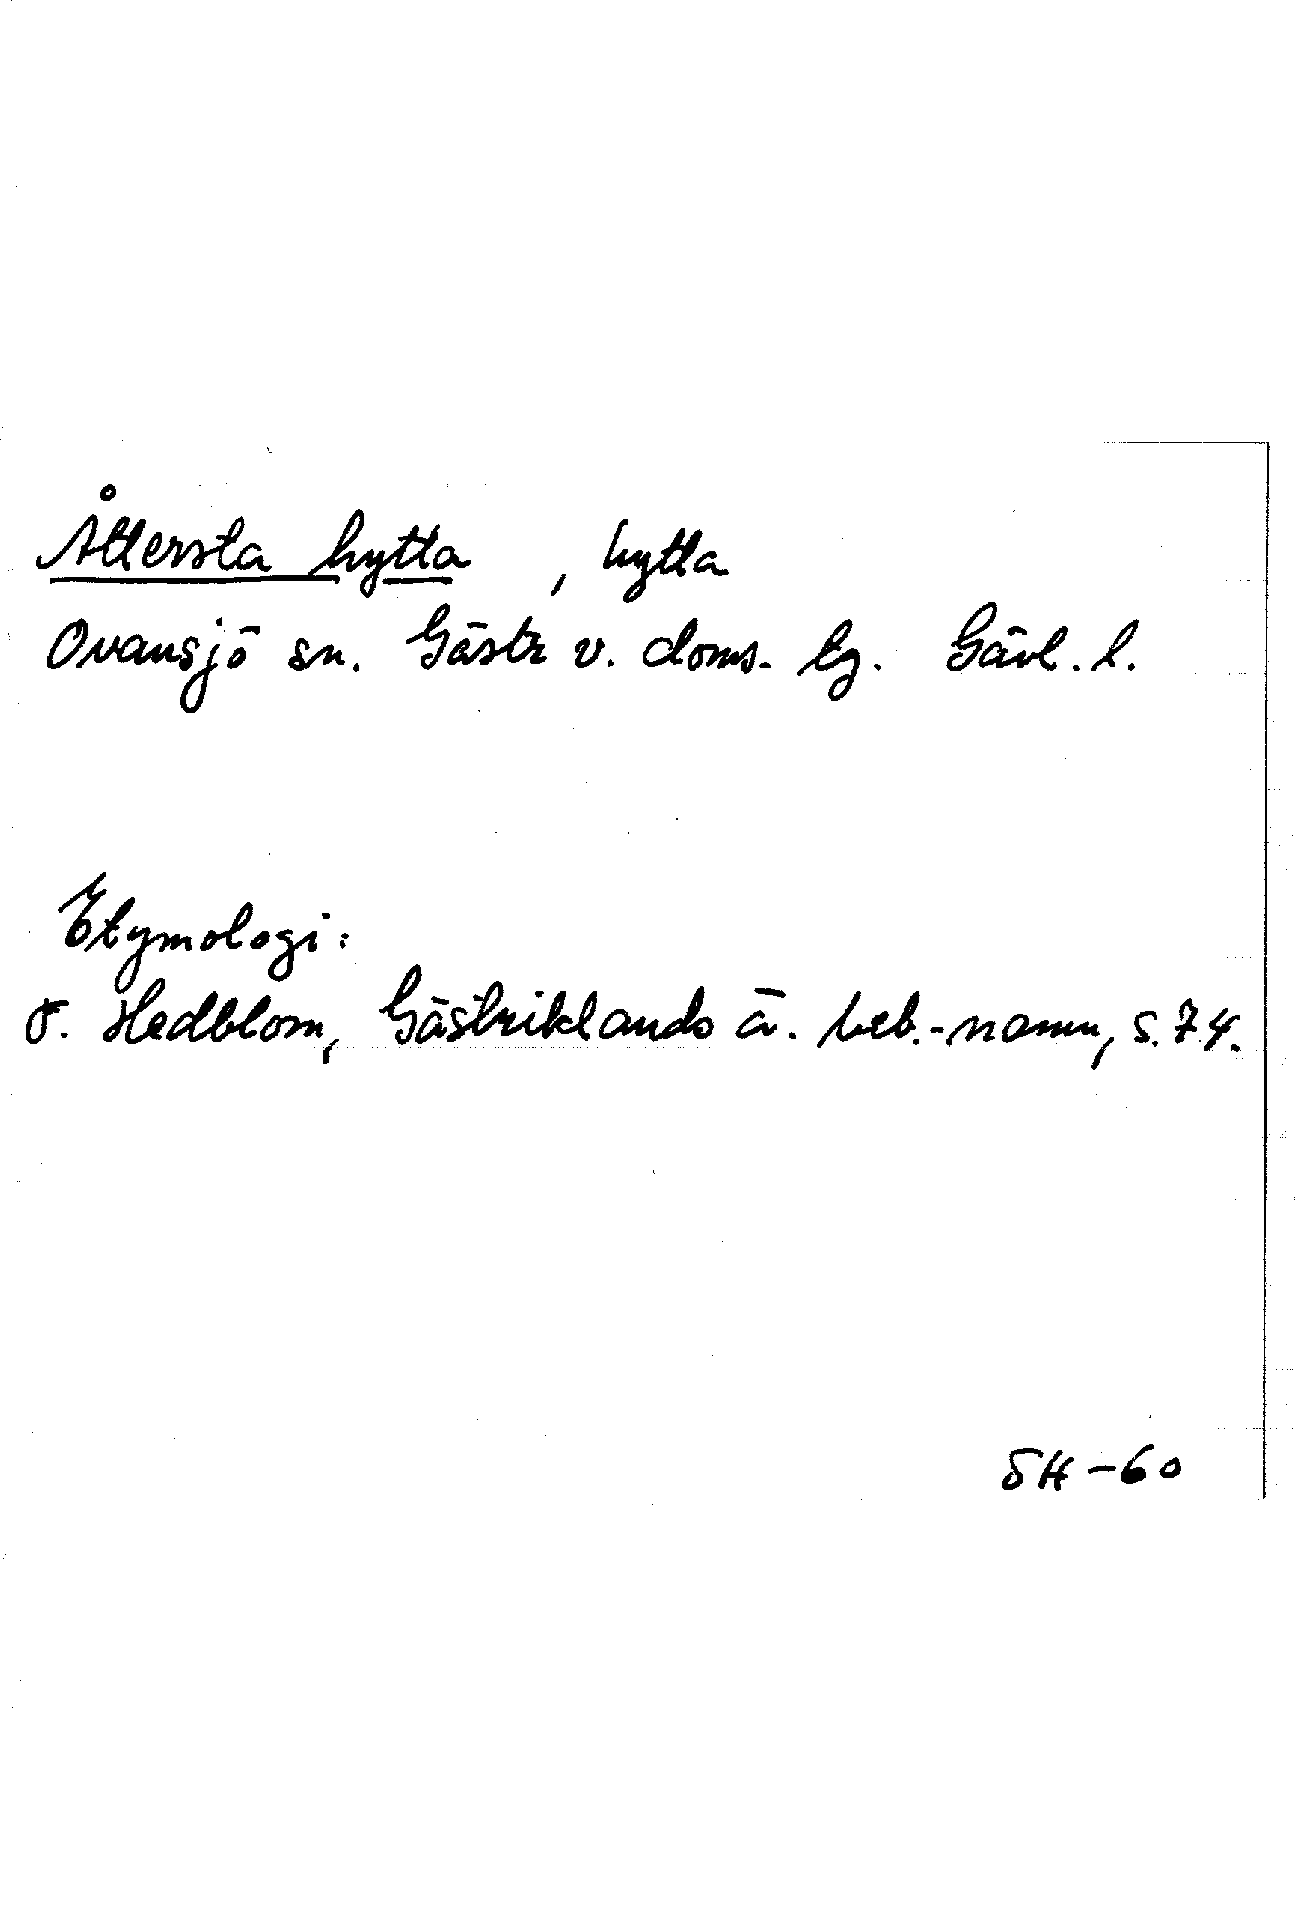 Åttersta hytta, hytta
Ovansjö sn. Gästr v. doms. lg. Gävl. l.
Etymologi:
F. Hedblom, Gästriklands ä. beb.-namn, s. 74.
SH-60